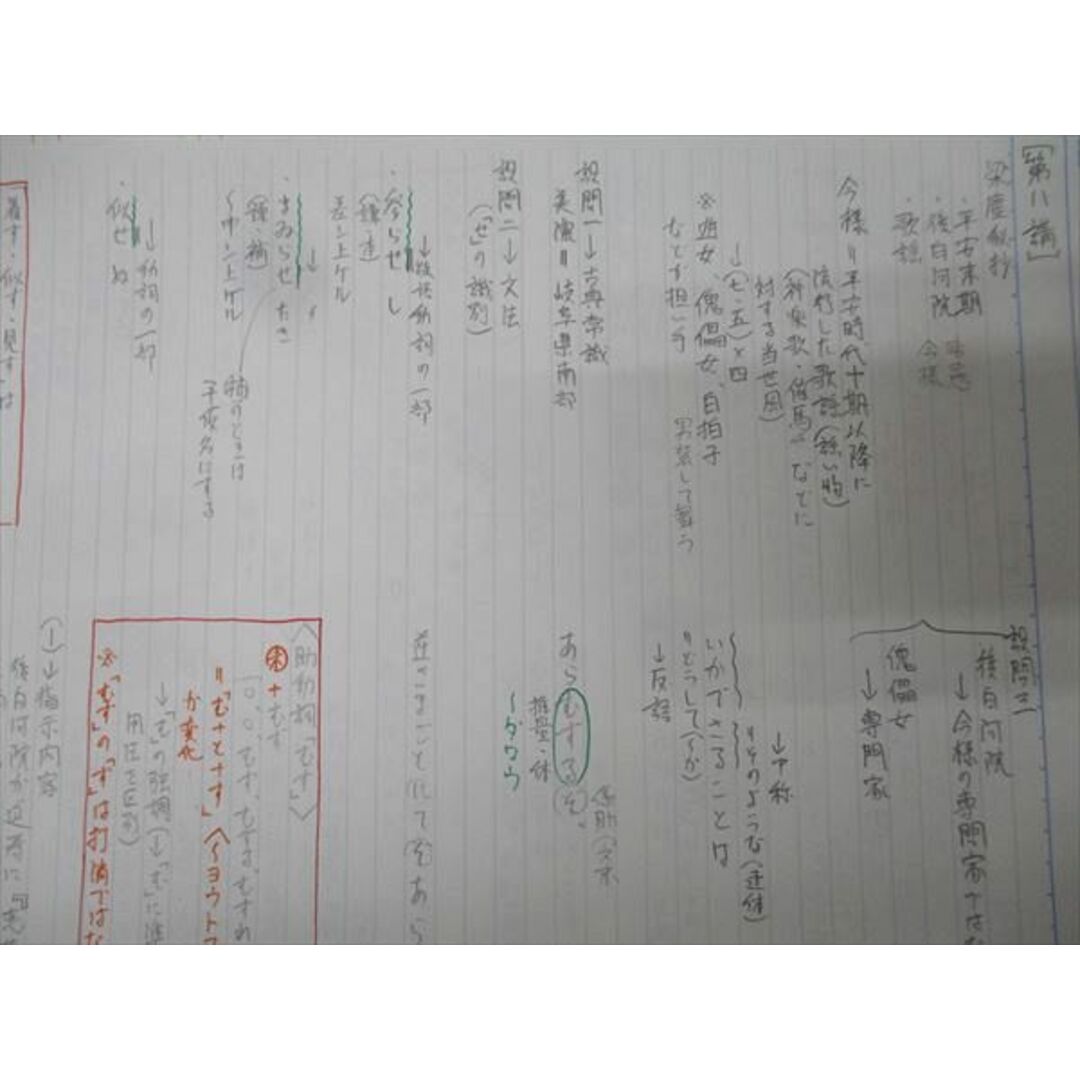 ［第八講］
梁塵秘抄
・平安末期
・後白河院
・歌謡
今様
今様＝平安時代中期以降に
流行した歌謡（謡い物）
（神楽歌・催馬楽などに
対する当世風）
↓（七・五）×四
※遊女、傀儡女、白拍子
などが担い手
男装して舞う
設問一→古典常識
美濃＝岐阜県南部
設問二→文法
（「せ」の識別）
・参らせし
↓敬語動詞の一部
（謙・達）
差シ上ゲル
・まゐらせたき
（謙・補）
〜申シ上ゲル
補のときは
平仮名にする
・似せぬ
↓動詞の一部
着す・似す・見す は
設問三
後白河院
→今様の専門家ではな
傀儡女
→専門家
↓中称
＝そのような（連体）
いかでさることは
＝どうして（〜か）
↓反語
あらむずる（ぞ）。
推量・体
〜ダロウ
〈助動詞「むず」〉
未＋むず
「○、○、むず、むずる、むずれ
＝「むとす」〈〜ヨウトス
が変化
→「む」の強調（→「む」に準
用法を区別）
※「むず」の「ず」は打消ではな
(1)→指示内容